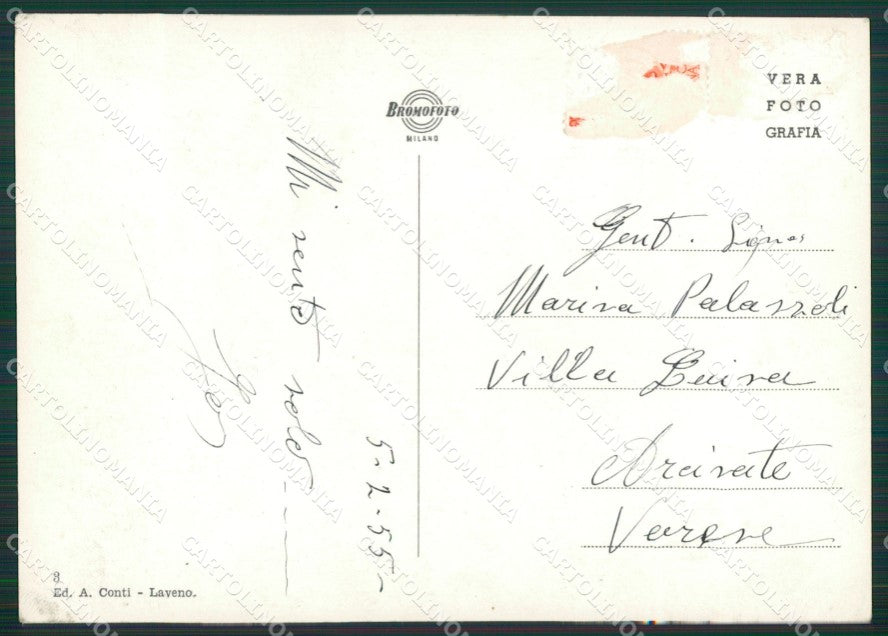 BROMOFOTO
MILANO
VERA
FOTO
GRAFIA
Mi sento solo
5-2-55-
Gent. Sigra
Marisa Palazzoli
Villa Luisa
Arcisate
Varese
8
Ed. A. Conti - Laveno.
CARTOLINOMANIA